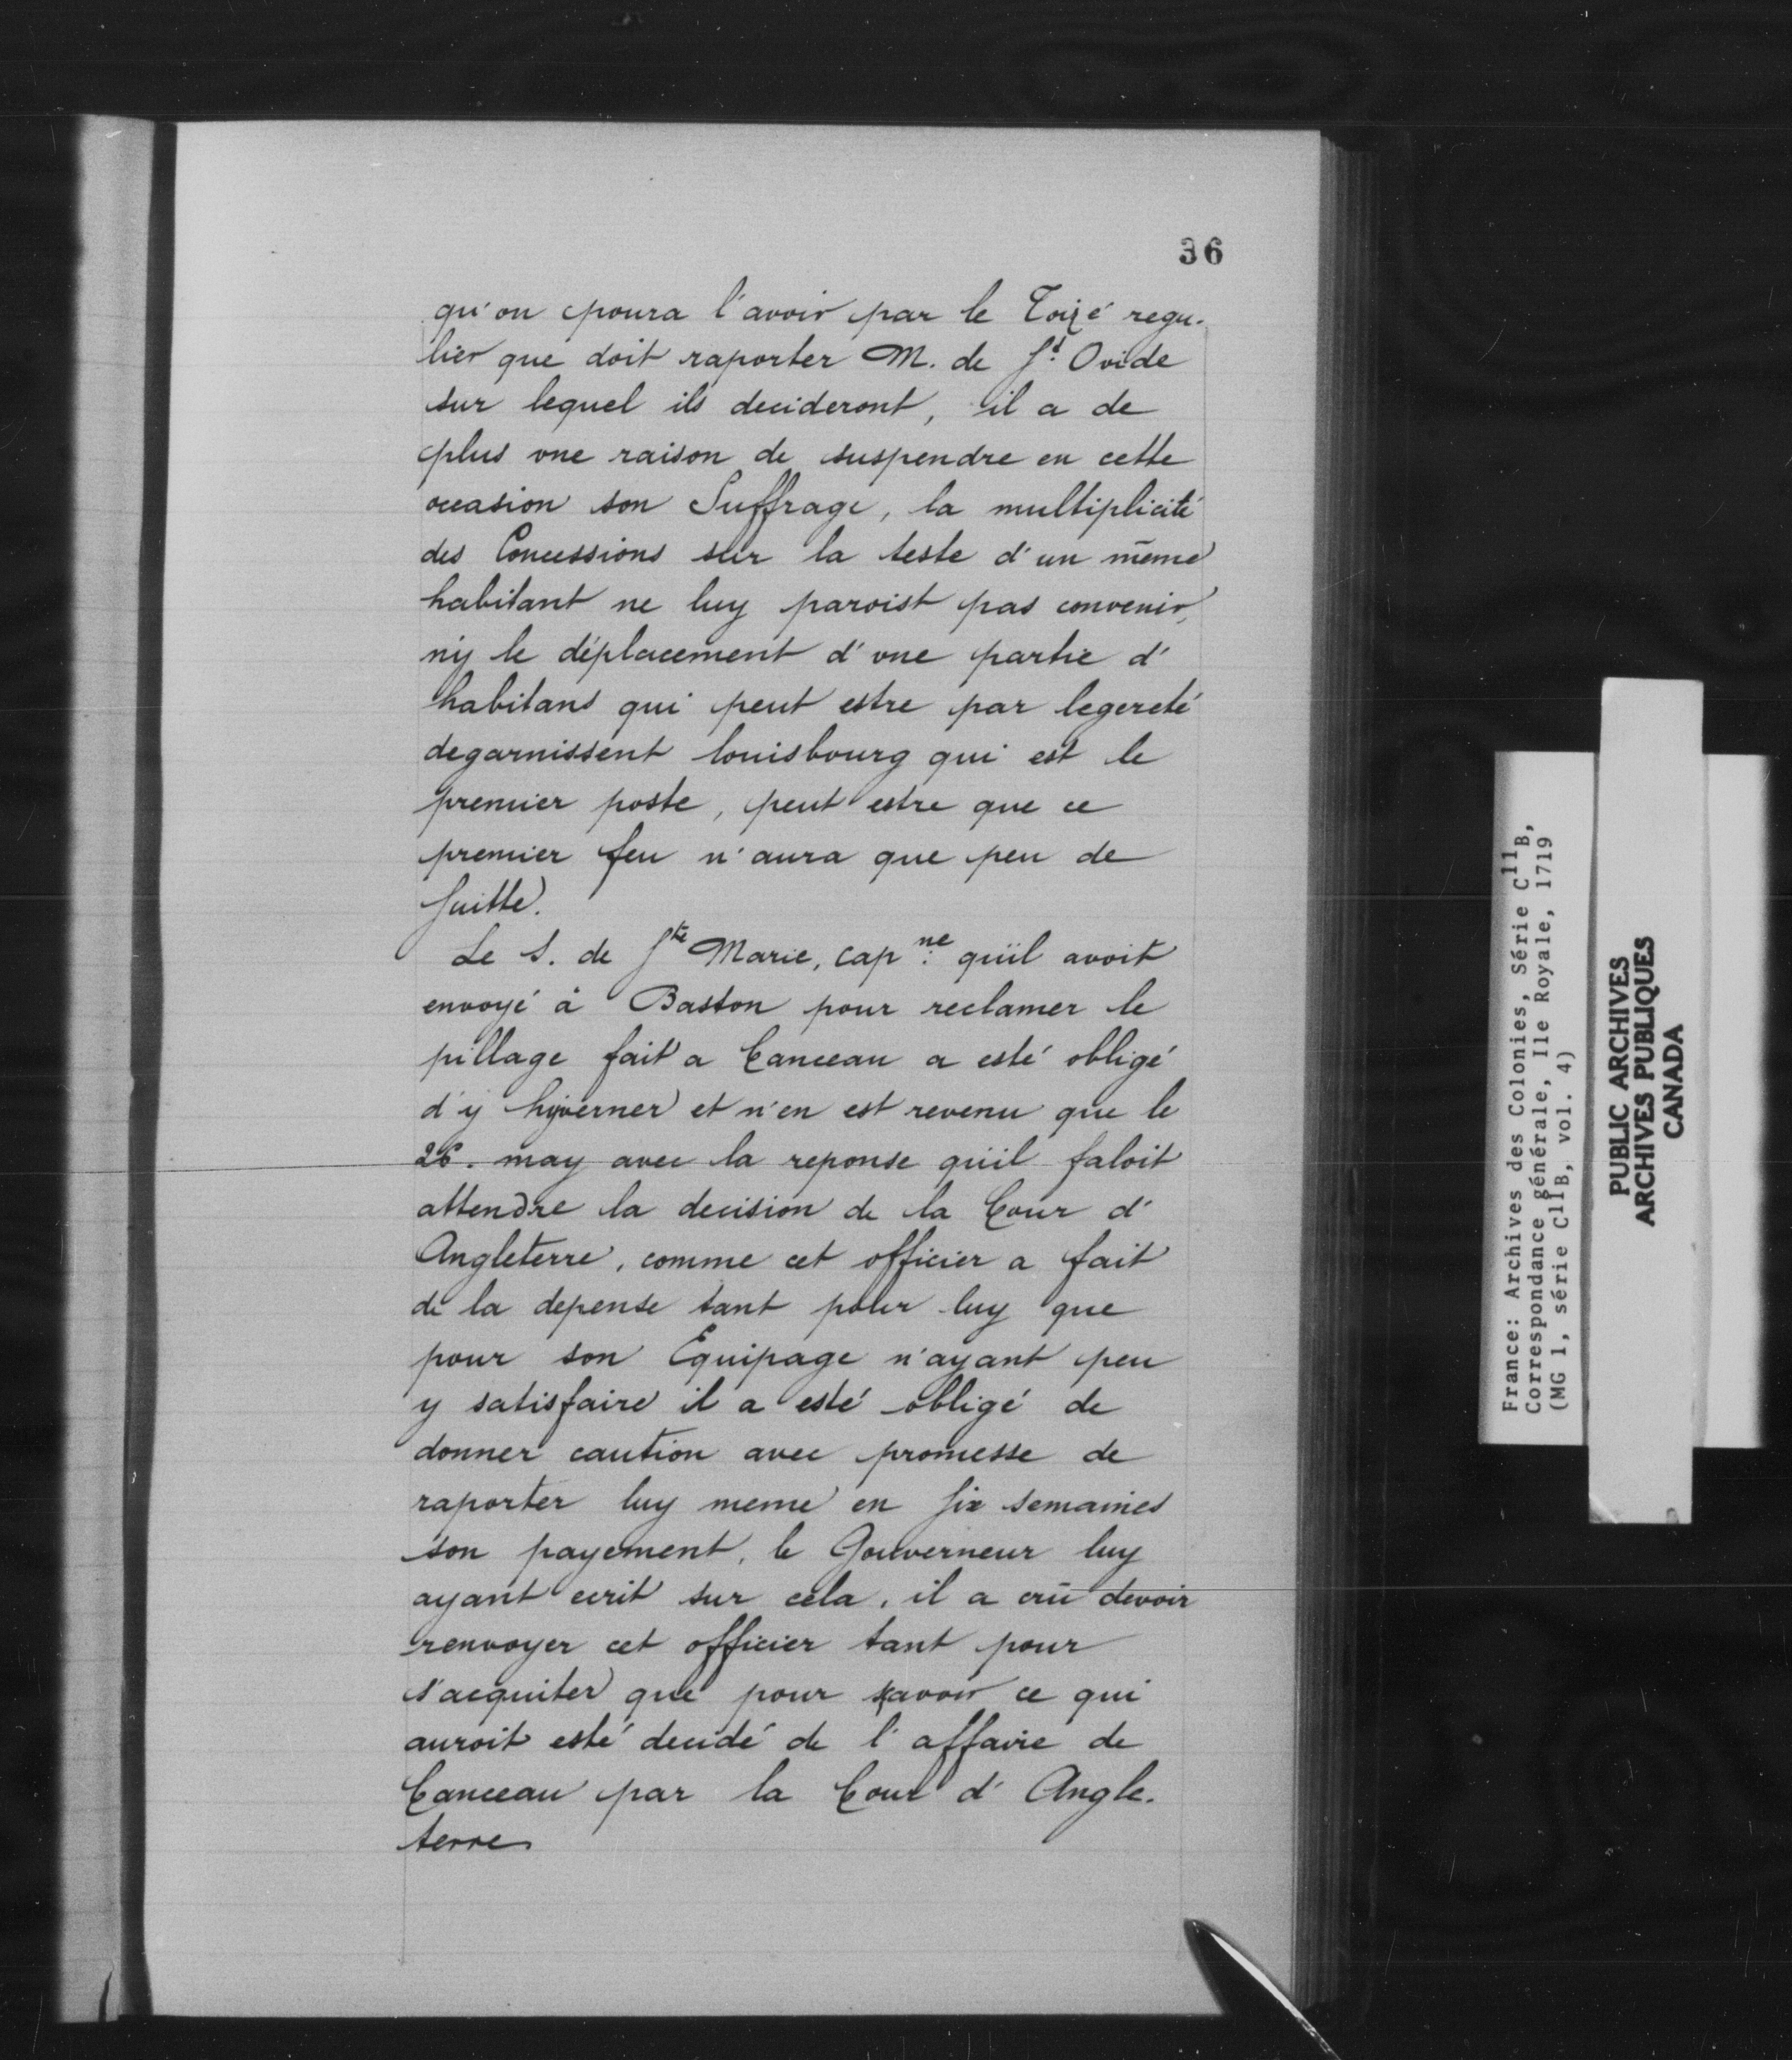 36
qu'on poura l'avoir par le Toizé regu-
lier que doit raporter M. de St. Ovide
sur lequel ils decideront, il a de
plus vne raison de suspendre en cette
occasion son Suffrage, la multiplicité
des Concessions sur la teste d'un même
habitant ne luy paroist pas convenir,
ny le déplacement d'vne partie d'
habitans qui peut estre par legereté
degarnissent louisbourg qui est le
premier poste, peut estre que ce
premier feu n'aura que peu de
suitte.
Le S. de Ste Marie, capne. qu'il avoit
envoyé à Baston pour reclamer le
pillage fait a Canceau a esté obligé
d'y hyverner et n'en est revenu que le
26. may avec la reponse qu'il faloit
attendre la decision de la Cour d'
Angleterre, comme cet officier a fait
de la depense tant pour luy que
pour son Equipage n'ayant peu
y satisfaire il a esté obligé de
donner caution avec promesse de
raporter luy meme en six semaines
son payement, le Gouverneur luy
ayant ecrit sur cela, il a crû devoir
renvoyer cet officier tant pour
s'acquiter que pour sçavoir ce qui
auroit esté decidé de l'affaire de
Canceau par la Cour d'Angle-
terre
France: Archives des Colonies, Série C11B,
Correspondance générale, Ile Royale, 1719
(MG 1, série C11B, vol. 4)
PUBLIC ARCHIVES
ARCHIVES PUBLIQUES
CANADA